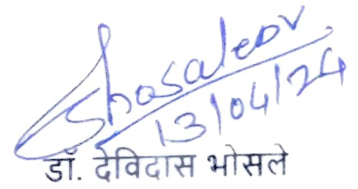 Bhosaleov
13/04/24
डॉ. देविदास भोसले